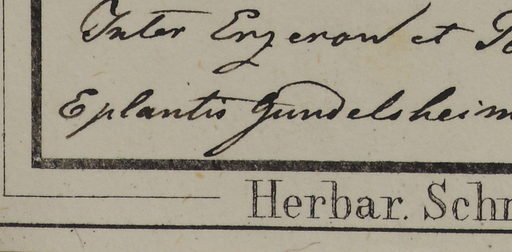 Inter Erzerow et
E plantis Gundelsheim
Herbar. Sch